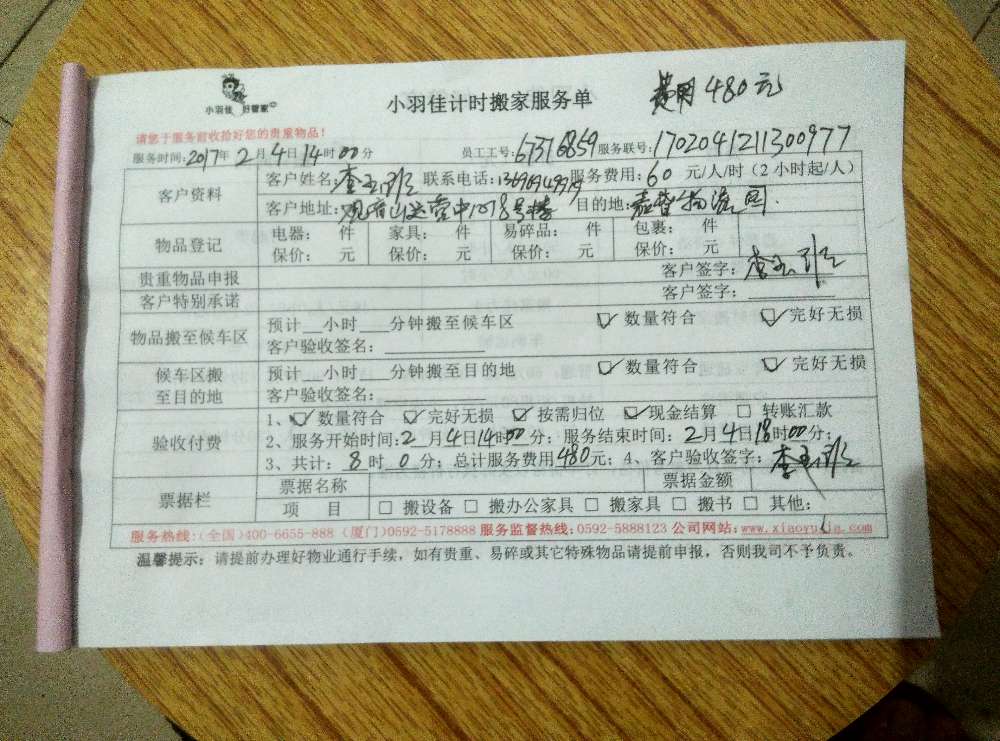 小羽佳 好管家
小羽佳计时搬家服务单 费用480元
请您于服务前收拾好您的贵重物品!
服务时间:2017年2月4日14时00分 员工工号:67376859 服务联号:170204121300977
客户资料 客户姓名: 联系电话: 服务费用:60元/人/时(2小时起/人)
客户地址:观音山运营中心7 8号楼 目的地:嘉晋物流园
物品登记 电器: 件 家具: 件 易碎品: 件 包裹: 件
保价: 元 保价: 元 保价: 元 保价: 元
贵重物品申报 客户签字:
客户特别承诺 客户签字:
物品搬至候车区 预计__小时___分钟搬至候车区 ☑数量符合 ☑完好无损
客户验收签名:
候车区搬至目的地 预计__小时___分钟搬至目的地 ☑数量符合 ☑完好无损
客户验收签名:
验收付费 1、☑数量符合 ☑完好无损 ☑按需归位 ☑现金结算 □转账汇款
2、服务开始时间:2月4日14时00分;服务结束时间:2月4日18时00分;
3、共计:8时0分;总计服务费用480元;4、客户验收签字:
票据栏 票据名称 票据金额
项 目 □搬设备 □搬办公家具 □搬家具 □搬书 □其他:
服务热线:(全国)400-6655-888 (厦门)0592-5178888 服务监督热线:0592-5888123 公司网站:www.xiaoyujia.com
温馨提示:请提前办理好物业通行手续,如有贵重、易碎或其它特殊物品请提前申报,否则我司不予负责。